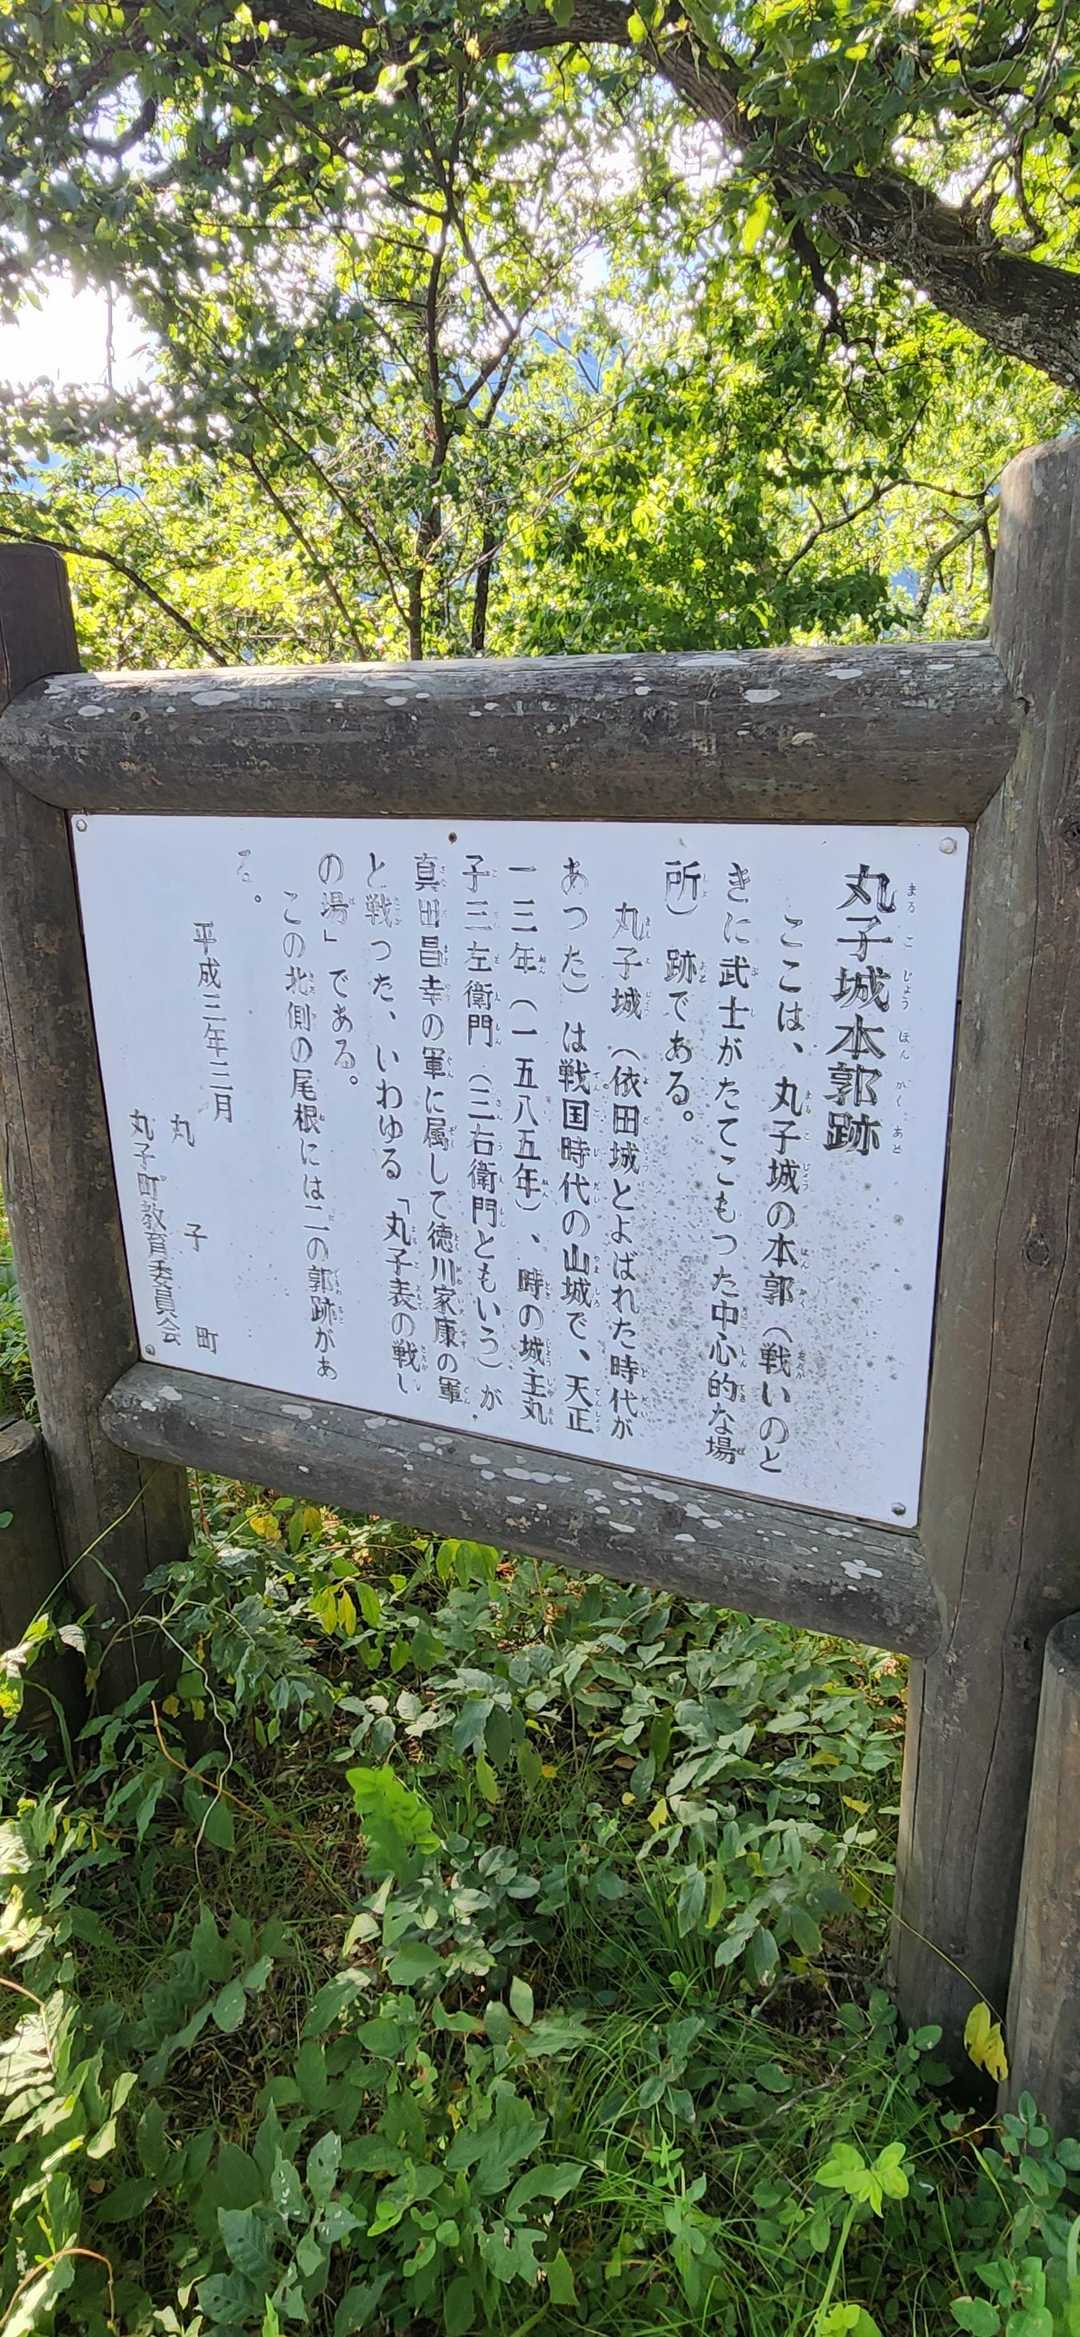 丸子城本郭跡
ここは、丸子城の本郭（戦いのと
きに武士がたてこもった中心的な場
所）跡である。
丸子城（依田城とよばれた時代が
あった）は戦国時代の山城で、天正
一三年（一五八五年）、時の城主丸
子三左衛門（三右衛門ともいう）が
真田昌幸の軍に属して徳川家康の軍
と戦った、いわゆる「丸子表の戦い
の場」である。
この北側の尾根には二の郭跡があ
る。
平成三年三月
丸子町
丸子町教育委員会